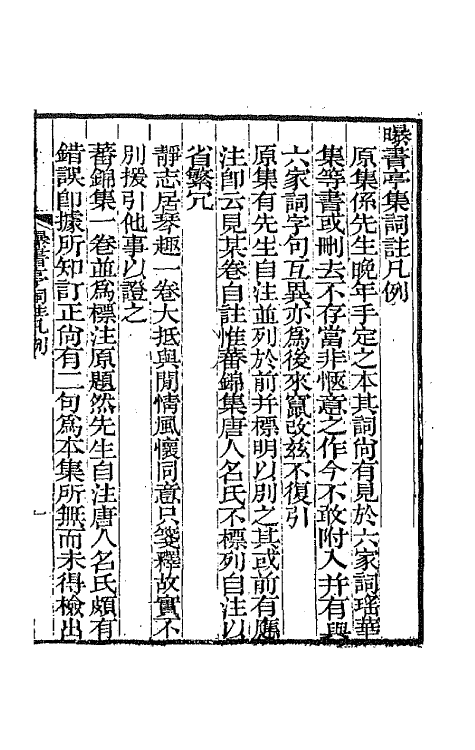 曝書亭集詞註凡例
原集係先生晚年手定之本其詞尙有見於六家詞瑤華
集等書或刪去不存當非愜意之作今不敢附入并有與
六家詞字句互異亦爲後來竄改茲不復引
原集有先生自注並列於前并標明以別之其或前有應
注卽云見某卷自註惟蕃錦集唐人名氏不標列自注以
省繁冗
靜志居琴趣一卷大抵與閒情風懷同意只箋釋故實不
別援引他事以證之
蕃錦集一卷並爲標注原題然先生自注唐人名氏頗有
錯誤卽據所知訂正尙有一二句爲本集所無而未得檢出
曝書亭詞註凡例
一